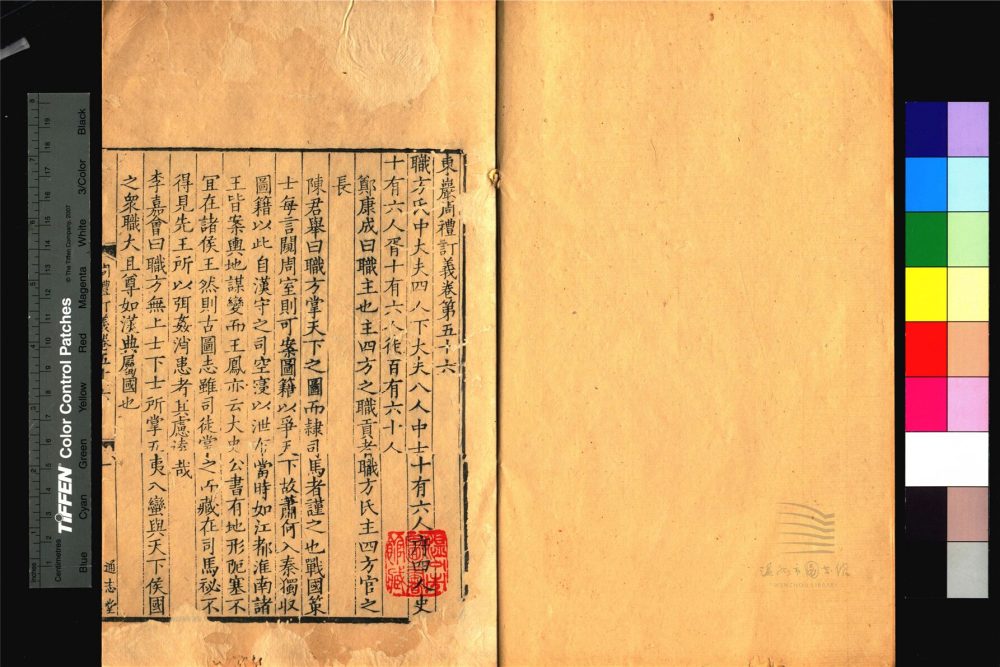 東巖周禮訂義卷第五十六
職方氏中大夫四人下大夫八人中士十有六人府四人史
十有六人胥十有六人徒百有六十人
鄭康成曰職主也主四方之職貢者職方氏主四方官之
長
陳君舉曰職方掌天下之圖而隸司馬者謹之也戰國策
士每言闚周室則可案圖籍以爭天下故蕭何入秦獨収
圖籍以此自漢守之司空寖以泄布當時如江都淮南諸
王皆案輿地謀變而王鳳亦云太史公書有地形阨塞不
冝在諸侯王然則古圖志雖司徒掌之而藏在司馬祕不
得見先王所以弭姦消患者其慮遠哉
李嘉會曰職方無上士下士所掌五夷八蠻與天下侯國
之衆職大且尊如漢典屬國也
周禮訂義卷五十六
一
通志堂
館藏
溫州市圖書館
WENZHOU LIBRARY
Inches
Centimetres
TIFFEN Color Control Patches
© The Tiffen Company, 2007
Blue
Cyan
Green
Yellow
Red
Magenta
White
3/Color
Black